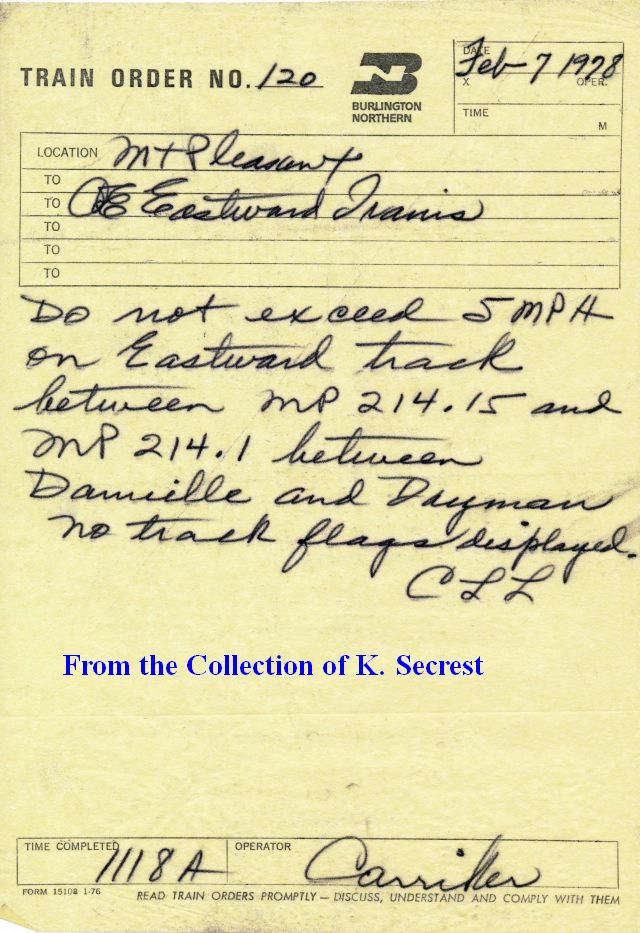 TRAIN ORDER NO. 120
BURLINGTON
NORTHERN
DATE
Feb 7 1978
X OPER.
TIME
M
LOCATION Mt Pleasant
TO
TO C&E Eastward Trains
TO
TO
TO
Do not exceed 5 MPH
on Eastward track
between MP 214.15 and
MP 214.1 between
Danville and Dayman
No track flags displayed.
CLL
From the Collection of K. Secrest
TIME COMPLETED 1118 A
OPERATOR Carriker
FORM 15108 1-76
READ TRAIN ORDERS PROMPTLY — DISCUSS, UNDERSTAND AND COMPLY WITH THEM